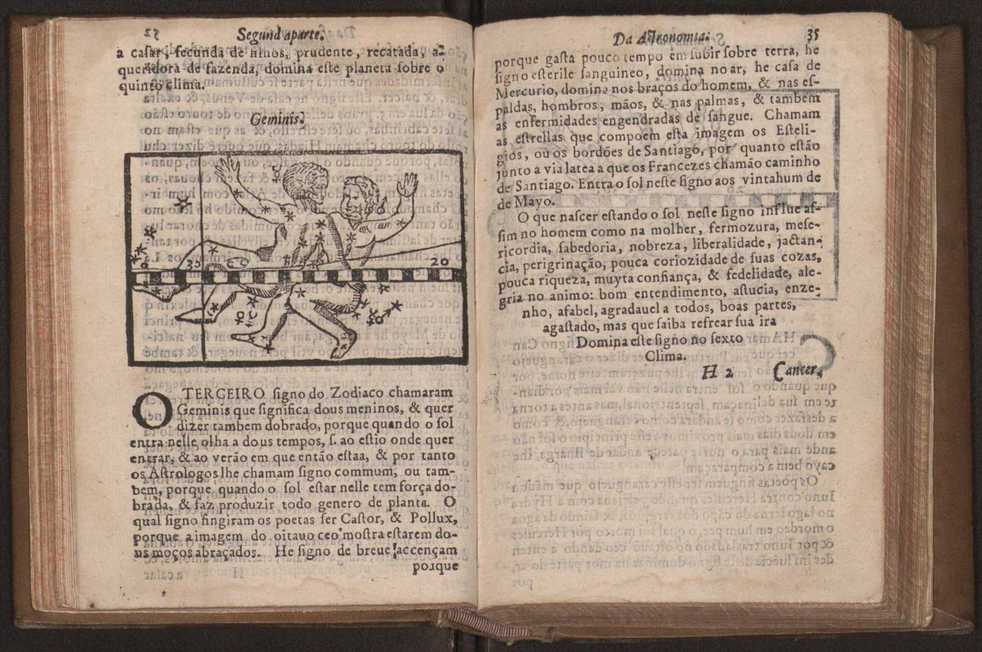 Segunda parte.
a casar, fecunda de filhos, prudente, recatada, a-
queridora de fazenda, domina este planeta sobre o
quinto clima.
Geminis.
30
20
O TERCEIRO signo do Zodiaco chamaram
Geminis que significa dous meninos, & quer
dizer tambem dobrado, porque quando o sol
entra nelle olha a dous tempos, s. ao estio onde quer
entrar, & ao verão em que então estaa, & por tanto
os Astrologos lhe chamam signo commum, ou tam-
bem, porque quando o sol estar nelle tem força do-
brada, & faz produzir todo genero de planta. O
qual signo fingiram os poetas ser Castor, & Pollux,
porque a imagem do oitauo ceo mostra estarem do-
us moços abraçados. He signo de breue accençam
porque
Da Astronomia.
35
porque gasta pouco tempo em subir sobre terra, he
signo esterile sanguineo, domina no ar, he casa de
Mercurio, domina nos braços do homem, & nas es-
paldas, hombros, mãos, & nas palmas, & tambem
as enfermidades engendradas de sangue. Chamam
as estrellas que compoem esta imagem os Esteli-
gios, ou os bordões de Santiago, por quanto estão
junto a via latea a que os Francezes chamão caminho
de Santiago. Entra o sol neste signo aos vintahum de
de Mayo.
O que nascer estando o sol neste signo influe as-
sim no homem como na molher, fermozura, mese-
ricordia, sabedoria, nobreza, liberalidade, jactan-
cia, perigrinação, pouca coriozidade de suas cozas,
pouca riqueza, muyta confiança, & fedelidade, ale-
gria no animo: bom entendimento, astucia, enze-
nho, afabel, agradauel a todos, boas partes,
agastado, mas que saiba refrear sua ira
Domina este signo no sexto
Clima.
H 2 Cancer.